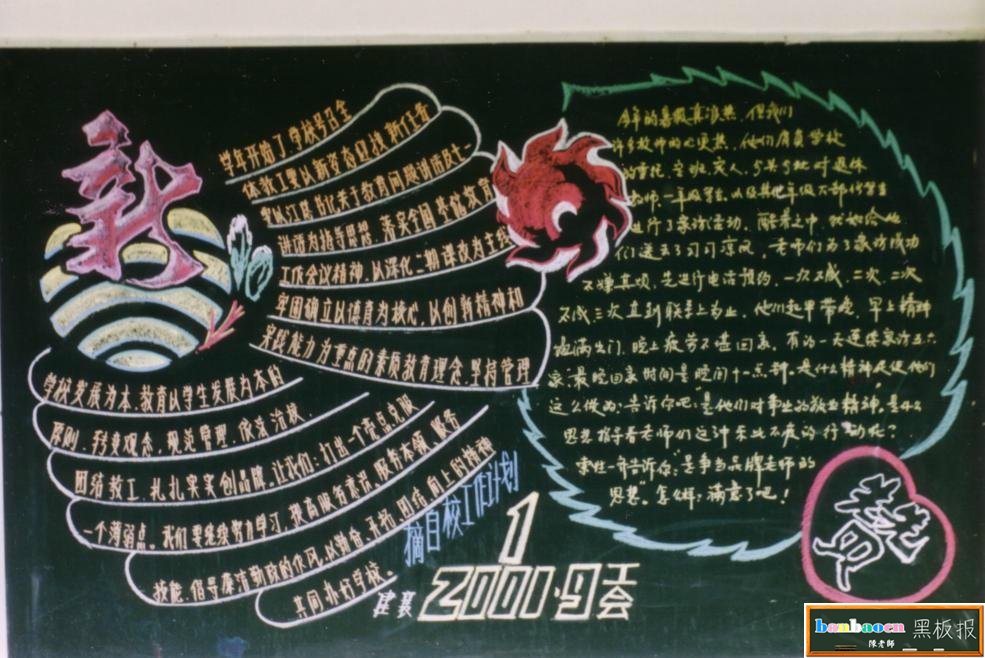 新
学年开始了学校号召全
体教工要以新姿态迎接新任务
讲话为指导思想,落实全国基础教育
工作会议精神,以深化二期课改为主线
牢固确立以德育为核心,以创新精神和
实践能力为重点的素质教育理念,坚持管理
学校发展为本,教育以学生发展为本的
原则,转变观念,规范管理,依法治校,
团结教工,扎扎实实创品牌。让我们:打出一个亮点克服
一个薄弱点。我们要继续努力学习,提高服务意识,服务本领,服务
技能,倡导廉洁勤政的作风,以勤奋、开拓、团结、向上的精神
共同办好学校。
摘自校工作计划
今年的暑假真准热,但我们
许多教师的心更热,他们肩负学校
教师,一年级学生,以及其他年级
进行了家访活动,酷暑之中,犹如给他
们送去了习习凉风,老师们为了家访成功
不嫌其烦,先进行电话预约,一次不成,二次,二次
不成,三次直到联系上为止,他们起早带晚,早上精神
饱满出门,晚上疲劳不堪回家,有的一天连续家访五六
家,最晚回家时间是晚间十一点钟。是什么精神促使他们
这么做的:告诉你吧:是他们对事业的敬业精神,是什么
思想指导着老师们这种乐此不疲的行动呢?
索性一齐告诉你"是争当品牌老师的
思想"。怎么样,满意了吧!
赞
建襄
2001.9
工会
banbaoen 黑板报
陈老師